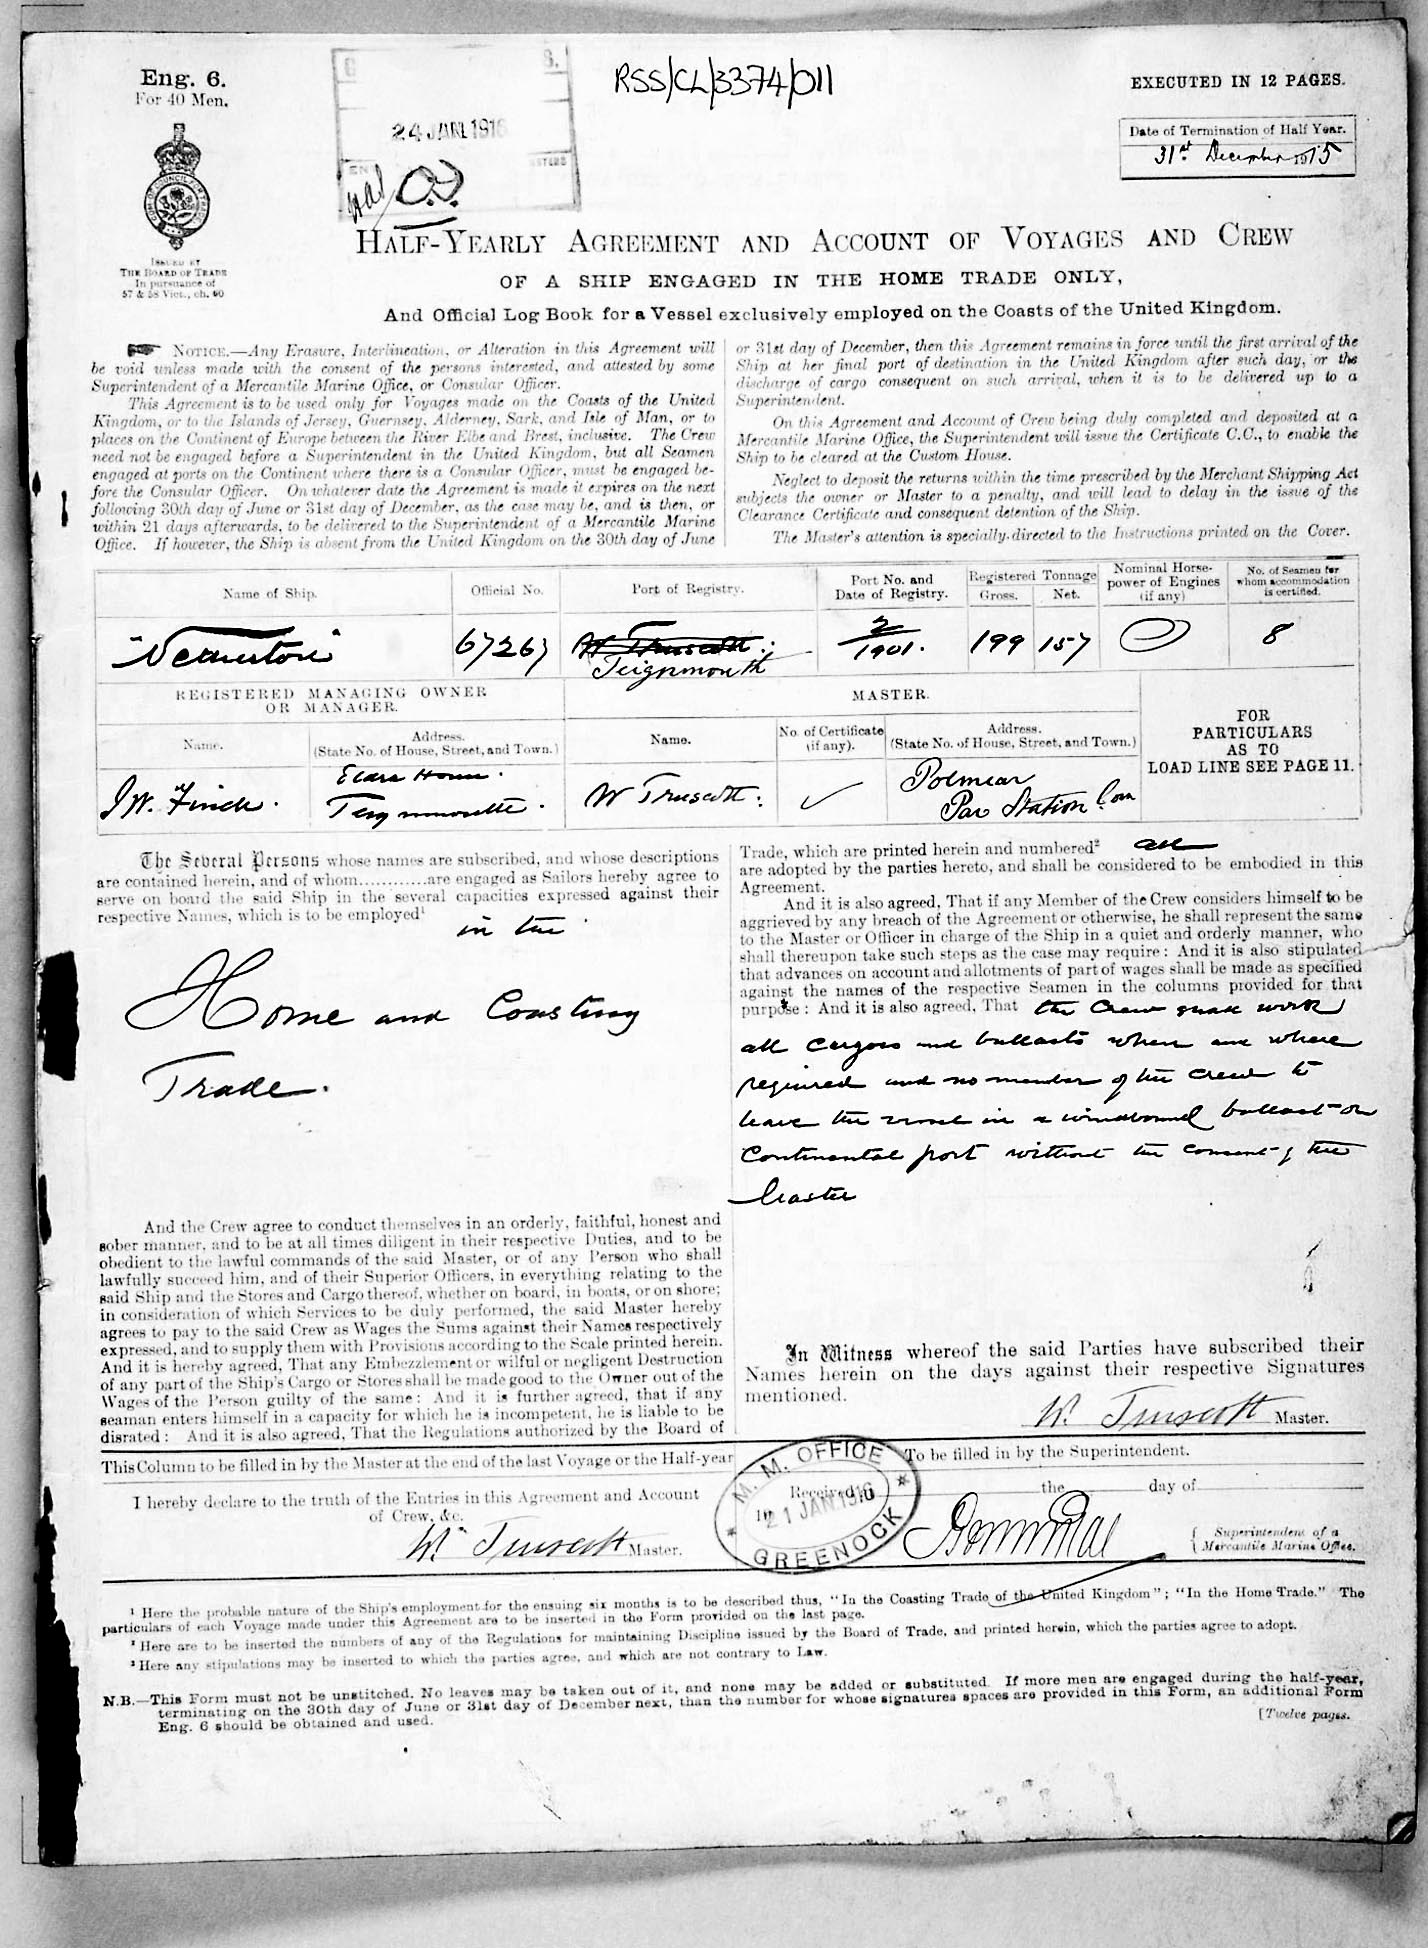 Eng. 6.
For 40 Men.
ISSUED BY
THE BOARD OF TRADE
In pursuance of
57 & 58 Vict., ch. 60
24 JAN 1916
RSS/CL/3374/011
EXECUTED IN 12 PAGES.
Date of Termination of Half Year.
31st December 1915
HALF-YEARLY AGREEMENT AND ACCOUNT OF VOYAGES AND CREW
OF A SHIP ENGAGED IN THE HOME TRADE ONLY,
And Official Log Book for a Vessel exclusively employed on the Coasts of the United Kingdom.
NOTICE.—Any Erasure, Interlineation, or Alteration in this Agreement will
be void unless made with the consent of the persons interested, and attested by some
Superintendent of a Mercantile Marine Office, or Consular Officer.
This Agreement is to be used only for Voyages made on the Coasts of the United
Kingdom, or to the Islands of Jersey, Guernsey, Alderney, Sark, and Isle of Man, or to
places on the Continent of Europe between the River Elbe and Brest, inclusive. The Crew
need not be engaged before a Superintendent in the United Kingdom, but all Seamen
engaged at ports on the Continent where there is a Consular Officer, must be engaged be-
fore the Consular Officer. On whatever date the Agreement is made it expires on the next
following 30th day of June or 31st day of December, as the case may be, and is then, or
within 21 days afterwards, to be delivered to the Superintendent of a Mercantile Marine
Office. If however, the Ship is absent from the United Kingdom on the 30th day of June
or 31st day of December, then this Agreement remains in force until the first arrival of the
Ship at her final port of destination in the United Kingdom after such day, or the
discharge of cargo consequent on such arrival, when it is to be delivered up to a
Superintendent.
On this Agreement and Account of Crew being duly completed and deposited at a
Mercantile Marine Office, the Superintendent will issue the Certificate C.C., to enable the
Ship to be cleared at the Custom House.
Neglect to deposit the returns within the time prescribed by the Merchant Shipping Act
subjects the owner or Master to a penalty, and will lead to delay in the issue of the
Clearance Certificate and consequent detention of the Ship.
The Master's attention is specially directed to the Instructions printed on the Cover.
Name of Ship. Official No. Port of Registry. Port No. and Date of Registry. Registered Tonnage Gross. Net. Nominal Horse-power of Engines (if any) No. of Seamen for whom accommodation is certified.
67267 W Truscott Teignmouth 2/1901. 199 157 0 8
REGISTERED MANAGING OWNER
OR MANAGER.
MASTER.
FOR
PARTICULARS
AS TO
LOAD LINE SEE PAGE 11.
Name. Address. (State No. of House, Street, and Town.) Name. No. of Certificate (if any). Address. (State No. of House, Street, and Town.)
J W. Finch. House. Teignmouth. W Truscott. Polmear
Par Station Corn
The Several Persons whose names are subscribed, and whose descriptions
are contained herein, and of whom............are engaged as Sailors hereby agree to
serve on board the said Ship in the several capacities expressed against their
respective Names, which is to be employed¹ in the
Home and Coasting
Trade.
And the Crew agree to conduct themselves in an orderly, faithful, honest and
sober manner, and to be at all times diligent in their respective Duties, and to be
obedient to the lawful commands of the said Master, or of any Person who shall
lawfully succeed him, and of their Superior Officers, in everything relating to the
said Ship and the Stores and Cargo thereof, whether on board, in boats, or on shore;
in consideration of which Services to be duly performed, the said Master hereby
agrees to pay to the said Crew as Wages the Sums against their Names respectively
expressed, and to supply them with Provisions according to the Scale printed herein.
And it is hereby agreed, That any Embezzlement or wilful or negligent Destruction
of any part of the Ship's Cargo or Stores shall be made good to the Owner out of the
Wages of the Person guilty of the same: And it is further agreed, that if any
seaman enters himself in a capacity for which he is incompetent, he is liable to be
disrated: And it is also agreed, That the Regulations authorized by the Board of
Trade, which are printed herein and numbered² all
are adopted by the parties hereto, and shall be considered to be embodied in this
Agreement.
And it is also agreed, That if any Member of the Crew considers himself to be
aggrieved by any breach of the Agreement or otherwise, he shall represent the same
to the Master or Officer in charge of the Ship in a quiet and orderly manner, who
shall thereupon take such steps as the case may require: And it is also stipulated
that advances on account and allotments of part of wages shall be made as specified
against the names of the respective Seamen in the columns provided for that
purpose: And it is also agreed, That ³ the Crew shall work
all cargoes and ballasts when and where
required and no member of the crew to
leave the vessel in a windbound ballast or
Continental port without the consent of the
Master
In Witness whereof the said Parties have subscribed their
Names herein on the days against their respective Signatures
mentioned.
W. Truscott Master.
This Column to be filled in by the Master at the end of the last Voyage or the Half-year
I hereby declare to the truth of the Entries in this Agreement and Account
of Crew, &c.
W. Truscott Master.
M. M. OFFICE
21 JAN 1916
GREENOCK
To be filled in by the Superintendent.
Received the day of
Superintendent of a
Mercantile Marine Office.
¹ Here the probable nature of the Ship's employment for the ensuing six months is to be described thus, "In the Coasting Trade of the United Kingdom"; "In the Home Trade." The
particulars of each Voyage made under this Agreement are to be inserted in the Form provided on the last page.
² Here are to be inserted the numbers of any of the Regulations for maintaining Discipline issued by the Board of Trade, and printed herein, which the parties agree to adopt.
³ Here any stipulations may be inserted to which the parties agree, and which are not contrary to Law.
N.B.—This Form must not be unstitched. No leaves may be taken out of it, and none may be added or substituted. If more men are engaged during the half-year,
terminating on the 30th day of June or 31st day of December next, than the number for whose signatures spaces are provided in this Form, an additional Form
Eng. 6 should be obtained and used.
[Twelve pages.